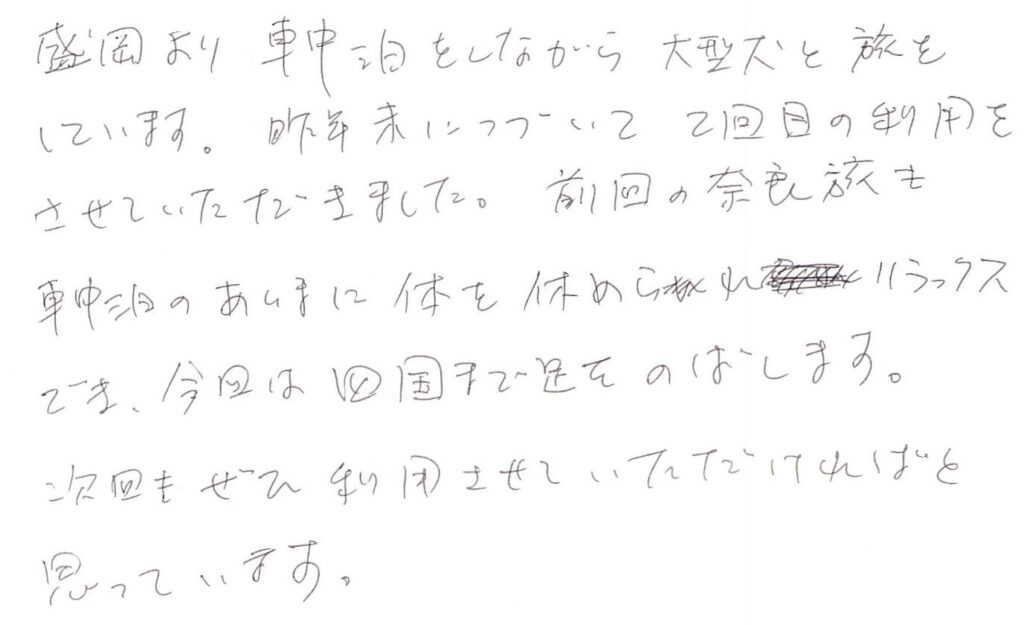 盛岡より 車中泊をしながら 大型犬と 旅を
しています。 昨年末につづいて 2回目の利用を
させていただきました。 前回の奈良旅も
車中泊のあいまに 体を 休められ リラックス
でき、今回は 四国まで足を のばします。
次回もぜひ 利用させていただければと
思っています。